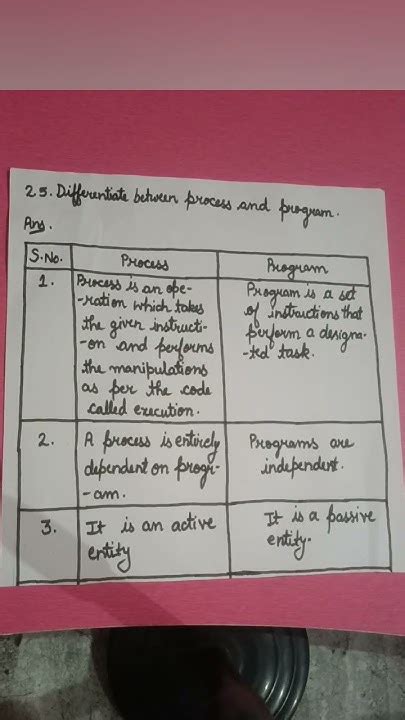 25. Differentiate between process and program.
Ans.
S.No.
Process
Program
1.
Process is an ope-
-ration which takes
the given instructi-
-on and performs
the manipulations
as per the code
called execution.
Program is a set
of instructions that
perform a designa-
-ted task.
2.
A process is entirely
dependent on progr-
-am.
Programs are
independent.
3.
It is an active
entity
It is a passive
entity.